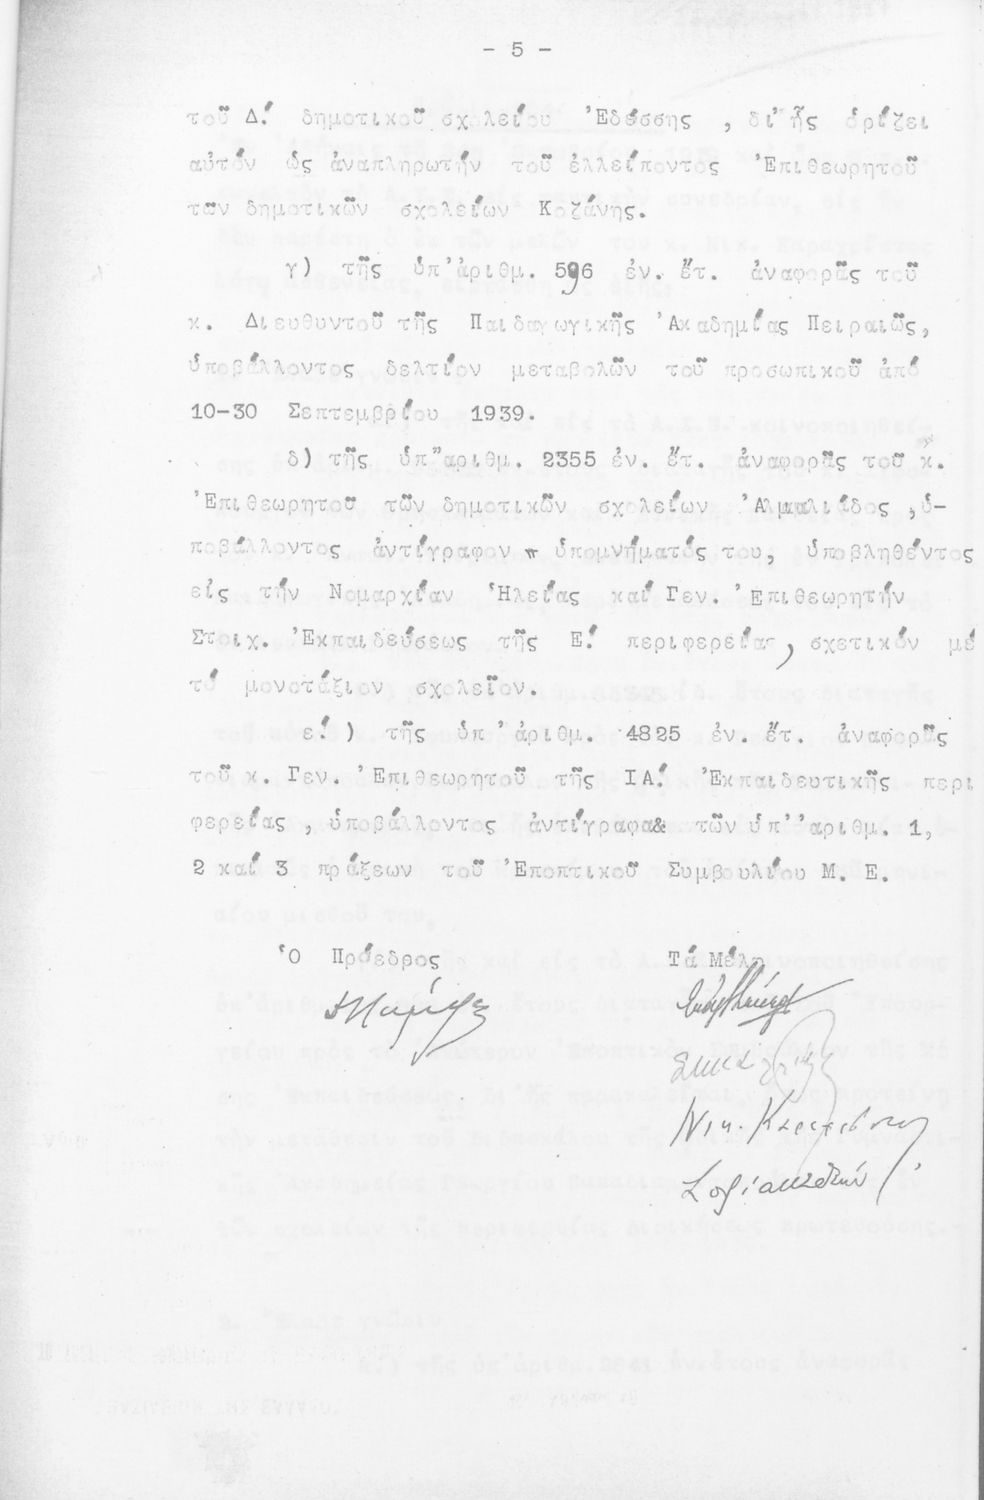 - 5 -
τοῦ Δ! δημοτικοῦ σχολείου Ἐδέσσης , δι'ἧς ὁρίζει
αὐτόν ὡς ἀναπληρωτήν τοῦ ἐλλείποντος Ἐπιθεωρητοῦ
τῶν δημοτικῶν σχολείων Κοζάνης.
γ) τῆς ὑπ'ἀριθμ. 596 ἐν. ἔτ. ἀναφορᾶς τοῦ
κ. Διευθυντοῦ τῆς Παιδαγωγικῆς Ἀκαδημίας Πειραιῶς,
ὑποβάλλοντος δελτίον μεταβολῶν τοῦ προσωπικοῦ ἀπό
10-30 Σεπτεμβρίου 1939.
δ) τῆς ὑπ"αριθμ. 2355 ἐν. ἔτ. ἀναφορᾶς τοῦ κ.
Ἐπιθεωρητοῦ τῶν δημοτικῶν σχολείων Ἀλμαλιάδος ,ὑ-
ποβάλλοντος ἀντίγραφον π ὑπομνήματός του, ὑποβληθέντος
εἰς τήν Νομαρχίαν Ἠλείας καί Γεν. Ἐπιθεωρητήν
Στοιχ. Ἐκπαιδεύσεως τῆς Ε! περιφερείας, σχετικόν μέ
τό μονοτάξιον σχολεῖον.
ε!) τῆς ὑπ'ἀριθμ. 4825 ἐν. ἔτ. ἀναφορᾶς
τοῦ κ. Γεν. Ἐπιθεωρητοῦ τῆς ΙΑ! Ἐκπαιδευτικῆς περι
φερείας , ὑποβάλλοντος ἀντίγραφα& τῶν ὑπ''αριθμ. 1,
2 καί 3 πράξεων τοῦ Ἐποπτικοῦ Συμβουλίου Μ. Ε.
Ὁ Πρόεδρος Τά Μέλη
Νικ.